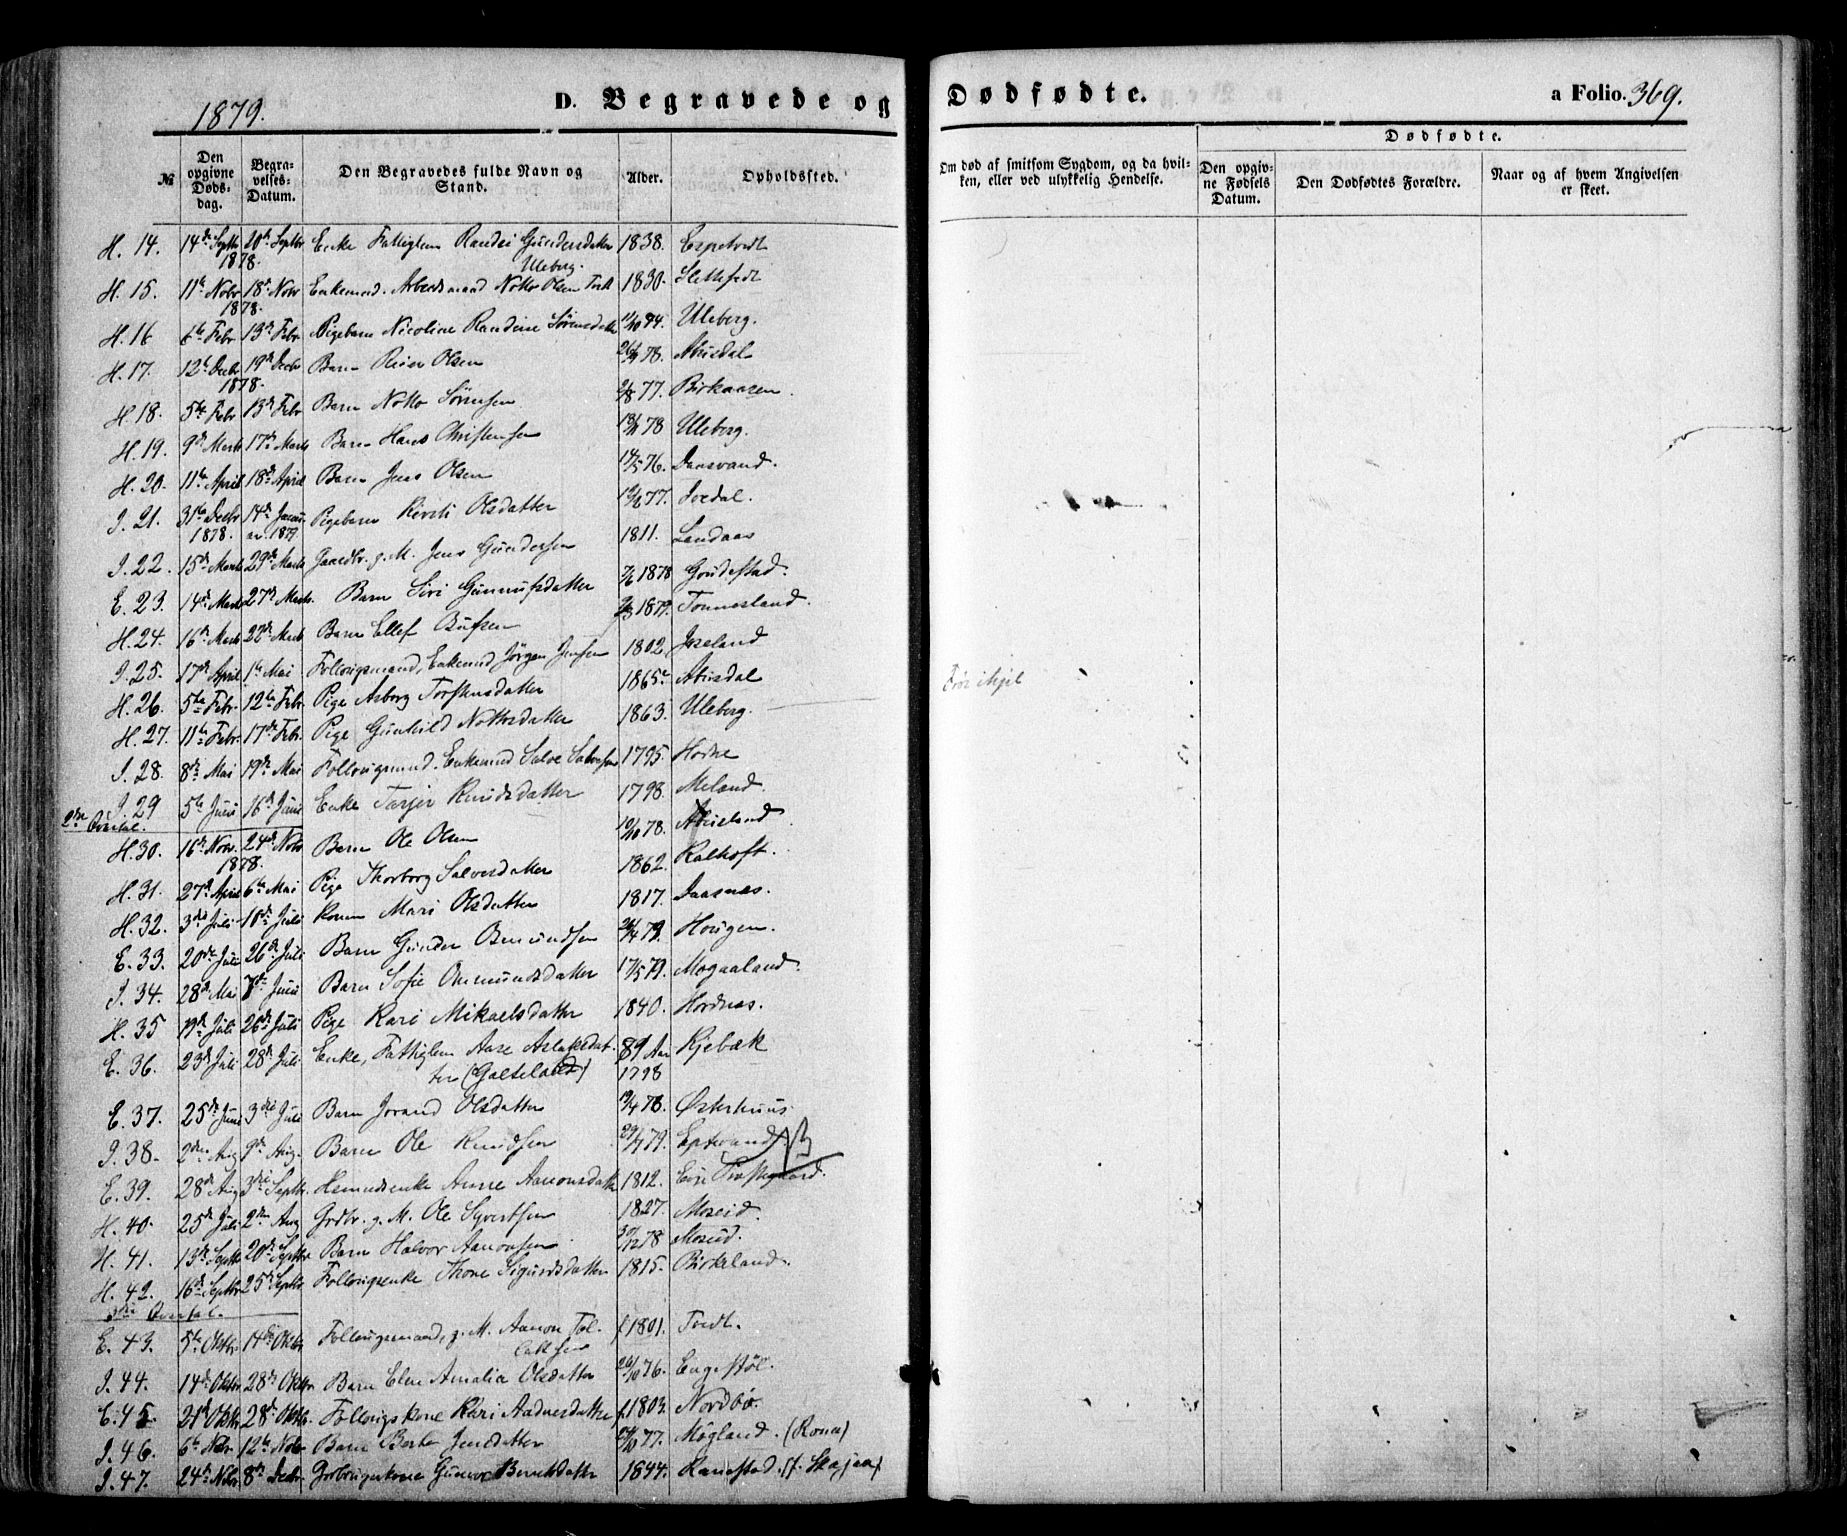 1879.
D. Begravede og Dødfødte.
a Folio. 369.
№
Den opgivne Døds-dag.
Begra-velses-Datum.
Den Begravedes fulde Navn og Stand.
Alder.
Opholdssted.
Om død af smitsom Sygdom, og da hvil-ken, eller ved ulykkelig Hendelse.
Dødfødte.
Den opgiv-ne Fødsels Datum.
Den Dødfødtes Forældre.
Naar og af hvem Angivelsen er skeet.
H. 14. 14de Septbr 1878. 20de Septbr Enke Fattiglem Randei Gundersdatter Uleberg. 1838. Espetvedt
H. 15. 11te Nobr 1878. 18de Nobr Enkemand. Arbeidsmand Notto Olsen 1830. Slettefedt
H. 16 6te Febr 13de Febr Pigebarn Nicoline Randine Sørensdatter Uleberg.
H. 17. 12te Decbr 1878. 19de Decbr Barn Reier Olsen 78. Abusdal
H. 18. 5te Febr 13de Febr Barn Notto Sørensen 2/8 77. Birkaasen
H. 19. 9de Marts 17de Marts Barn Hans Christensen 78 Uleberg.
H. 20. 11te April 18de April Barn Jens Olsen 14/5 76. Daasvand.
I. 21. 31te Decbr 1878. 14de Januar 1879. Pigebarn Kirsti Olsdatter 77. Ivedal.
I. 22. 15de Marts 29de Marts Gaardbr. g. M. Jens Gundersen 1811. Landaas
E. 23. 14de Marts 27de Marts. Barn Siri Gunnufsdatter 7/6 1878 Groudestad.
H. 24. 16de Marts 22de Marts Barn Ellef 1879. Tonnesland.
I. 25. 17de April 1te Mai Follougsmand, Enkemand Jørgen Jensen 1802 Iveland
H. 26. 5te Febr. 12te Febr. Pige Asborg Torstensdatter 1865 Abusdal Frøs ihjel
H. 27. 11te Febr. 17de Febr. Pige Gunhild Nottosdatter 1863. Uleberg.
I. 28. 8de Mai 19de Mai Follougsmand. Enkemand Salve Salvesen 1795. Hodne
I. 29 5te Juni 16de Juni Enke Tarjer Knudsdatter 1798. Meland.
2det Qvartal.
H. 30. 16de Nov. 1878. 24de Nobr Barn Ole Olsen 10/10 78. Abusland
H. 31. 27de April 6te Mai Pige Thorborg Salvesdatter 1862. Kalhoft.
H. 32. 3die Juli 10de Juli Konen Mari Olsdatter 1817. Daasnes.
E. 33. 20de Juli 26de Juli Barn Gunder Osmundsen 79. Hougen.
I. 34. 28de Mai 7de Juni Barn Sofie Ommundsdatter 17/5 79. Mogaaland.
H. 35 19de Juli 26de Juli Pige Kari Mikaelsdatter 1840. Hordnes.
E. 36. 23de Juli 28de Juli Enke, Fattiglem Aase Aslaksdatter (Galteland) 89 Aar 1798 Kjebæk
E. 37. 25de Juni 3die Juli Barn Jorand Olsdatter 78. Østerhuus
I. 38. 2den Aug 9de Aug. Barn Ole Knudsen 29/7 79. Eptevand
E. 39. 28de Aug 3die Septbr. Huusmandsenke Anne Aanonsdatter 1812. Evje Præstegaard.
H. 40. 25de Juli 2den Aug Grdbr. g. M. Ole Syvertsen 1827. Moseid.
H. 41. 13de Septbr 20de Septbr Barn Halvor Aanonsen 78 Moseid.
H. 42. 16de Septbr 25de Septbr Follougsenke Thone Sigurdsdatter 1815. Birkeland.
3die Qvartal.
E. 43. 5te Oktbr. 14de Oktbr Follougsmand, g. M. Aanon Tellefsen f 1801. Tvedt.
I. 44. 14de Oktbr 28de Oktbr Barn Elen Amalia Olsdatter 26/10 76. Engestøl.
E. 45. 21de Oktbr 28de Oktbr. Follougskone Kari Aadnesdatter f. 1803. Nordbø.
I. 46. 6te Nobr 12te Nobr Barn Berte Jensdatter 77. Mögland. (Rona)
I. 47. 24de Nobr 8de Decbr Grdbrugerkone Gunvor Berntsdatter 1844. Ranestad. (f. Skajaa)